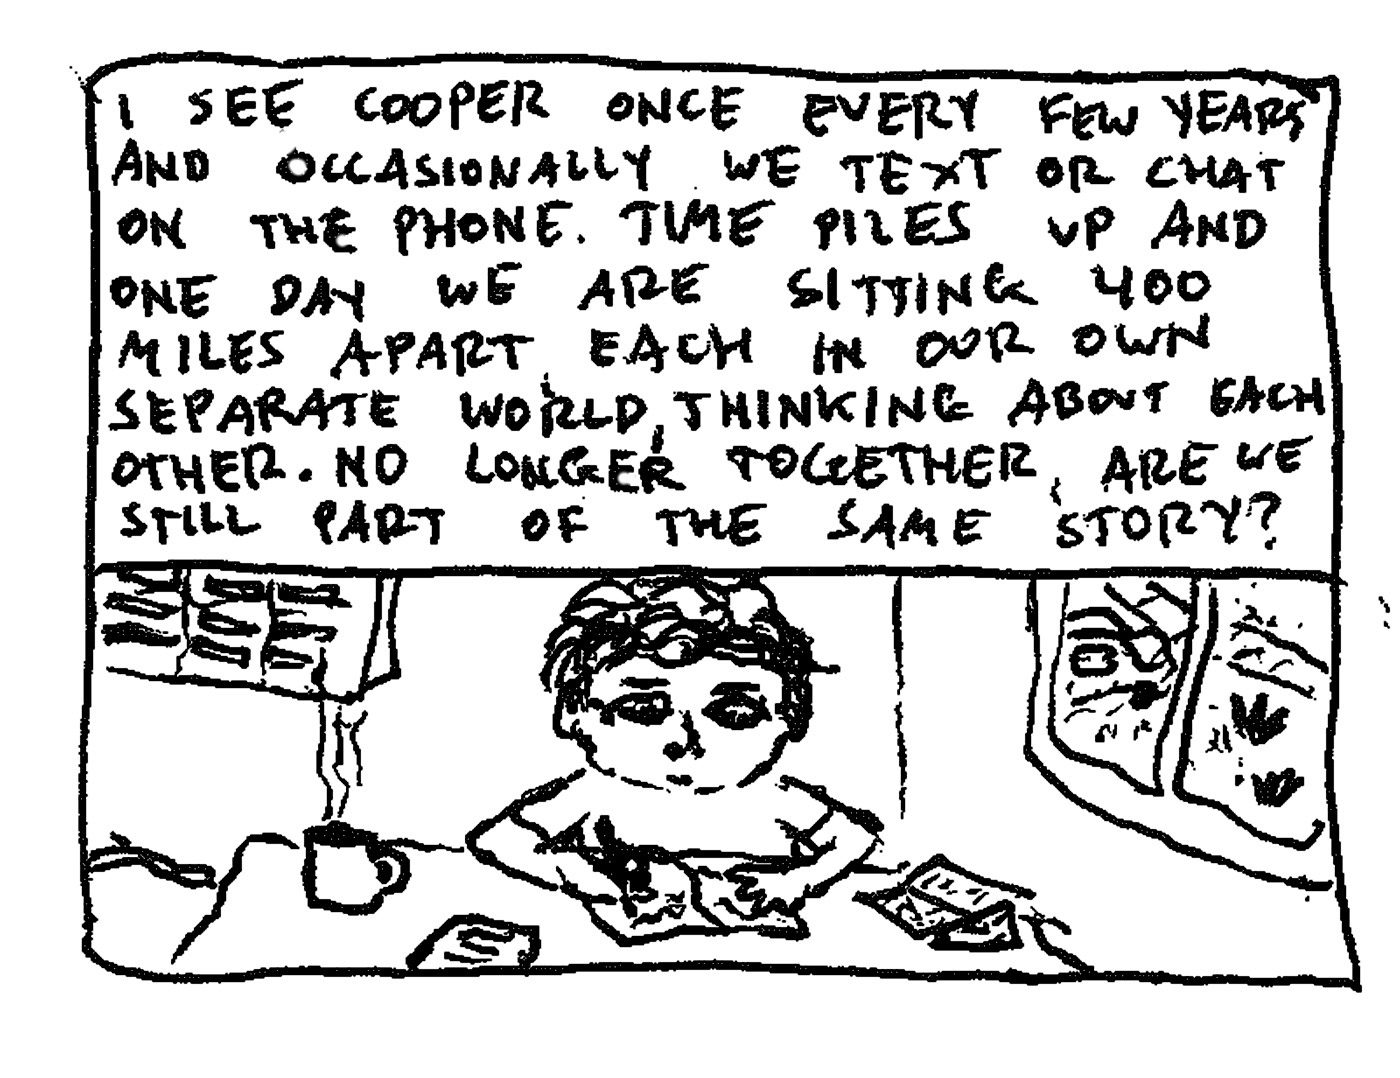 I SEE COOPER ONCE EVERY FEW YEARS
AND OCCASIONALLY WE TEXT OR CHAT
ON THE PHONE. TIME PILES UP AND
ONE DAY WE ARE SITTING 400
MILES APART, EACH IN OUR OWN
SEPARATE WORLD, THINKING ABOUT EACH
OTHER. NO LONGER TOGETHER, ARE WE
STILL PART OF THE SAME STORY?